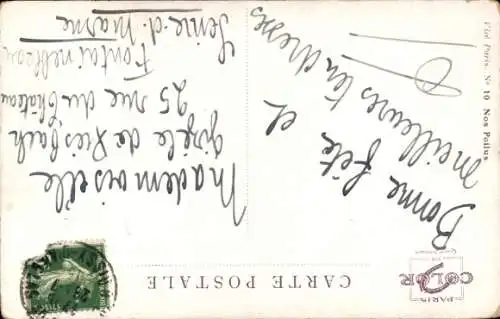 CARTE POSTALE
PARIS
COLOR
Viol Paris. N° 10 Nos Poilus
Bonne fête et
meilleures tendresses
Mademoiselle
Gisèle de Reisbach
25 rue du Château
Fontainebleau
Seine-d-Marne